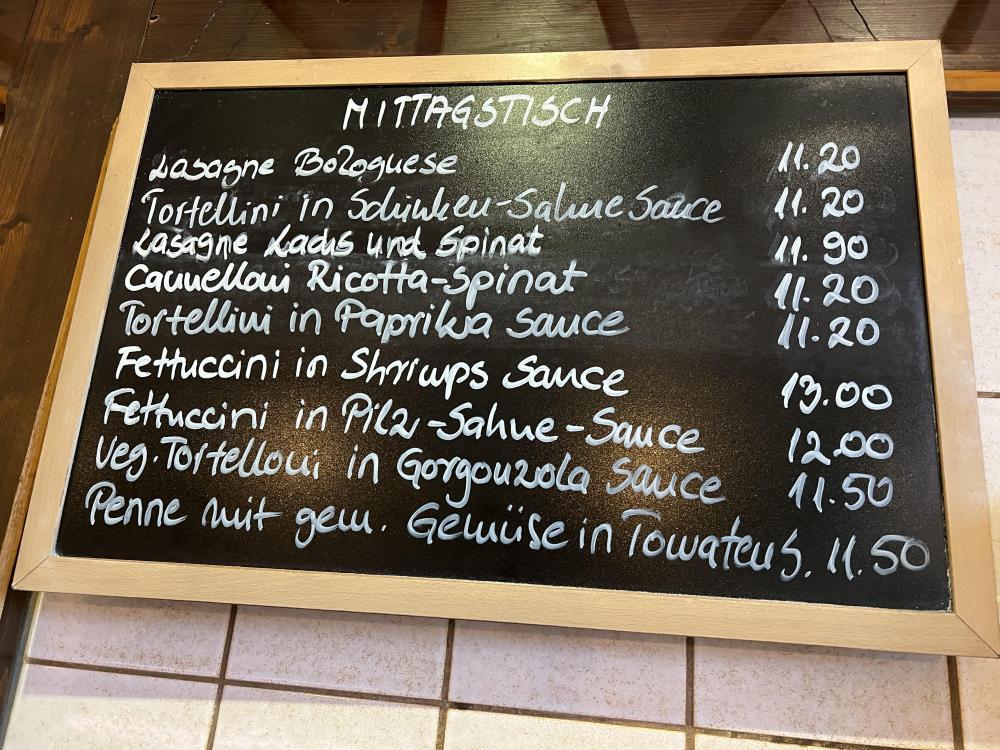 MITTAGSTISCH
Lasagne Bolognese 11.20
Tortellini in Schinken-Sahne Sauce 11.20
Lasagne Lachs und Spinat 11.90
Cannelloni Ricotta-Spinat 11.20
Tortellini in Paprika Sauce 11.20
Fettuccini in Shrimps Sauce 13.00
Fettuccini in Pilz-Sahne-Sauce 12.00
Veg. Tortelloni in Gorgonzola Sauce 11.50
Penne mit gem. Gemüse in Tomaten S. 11.50